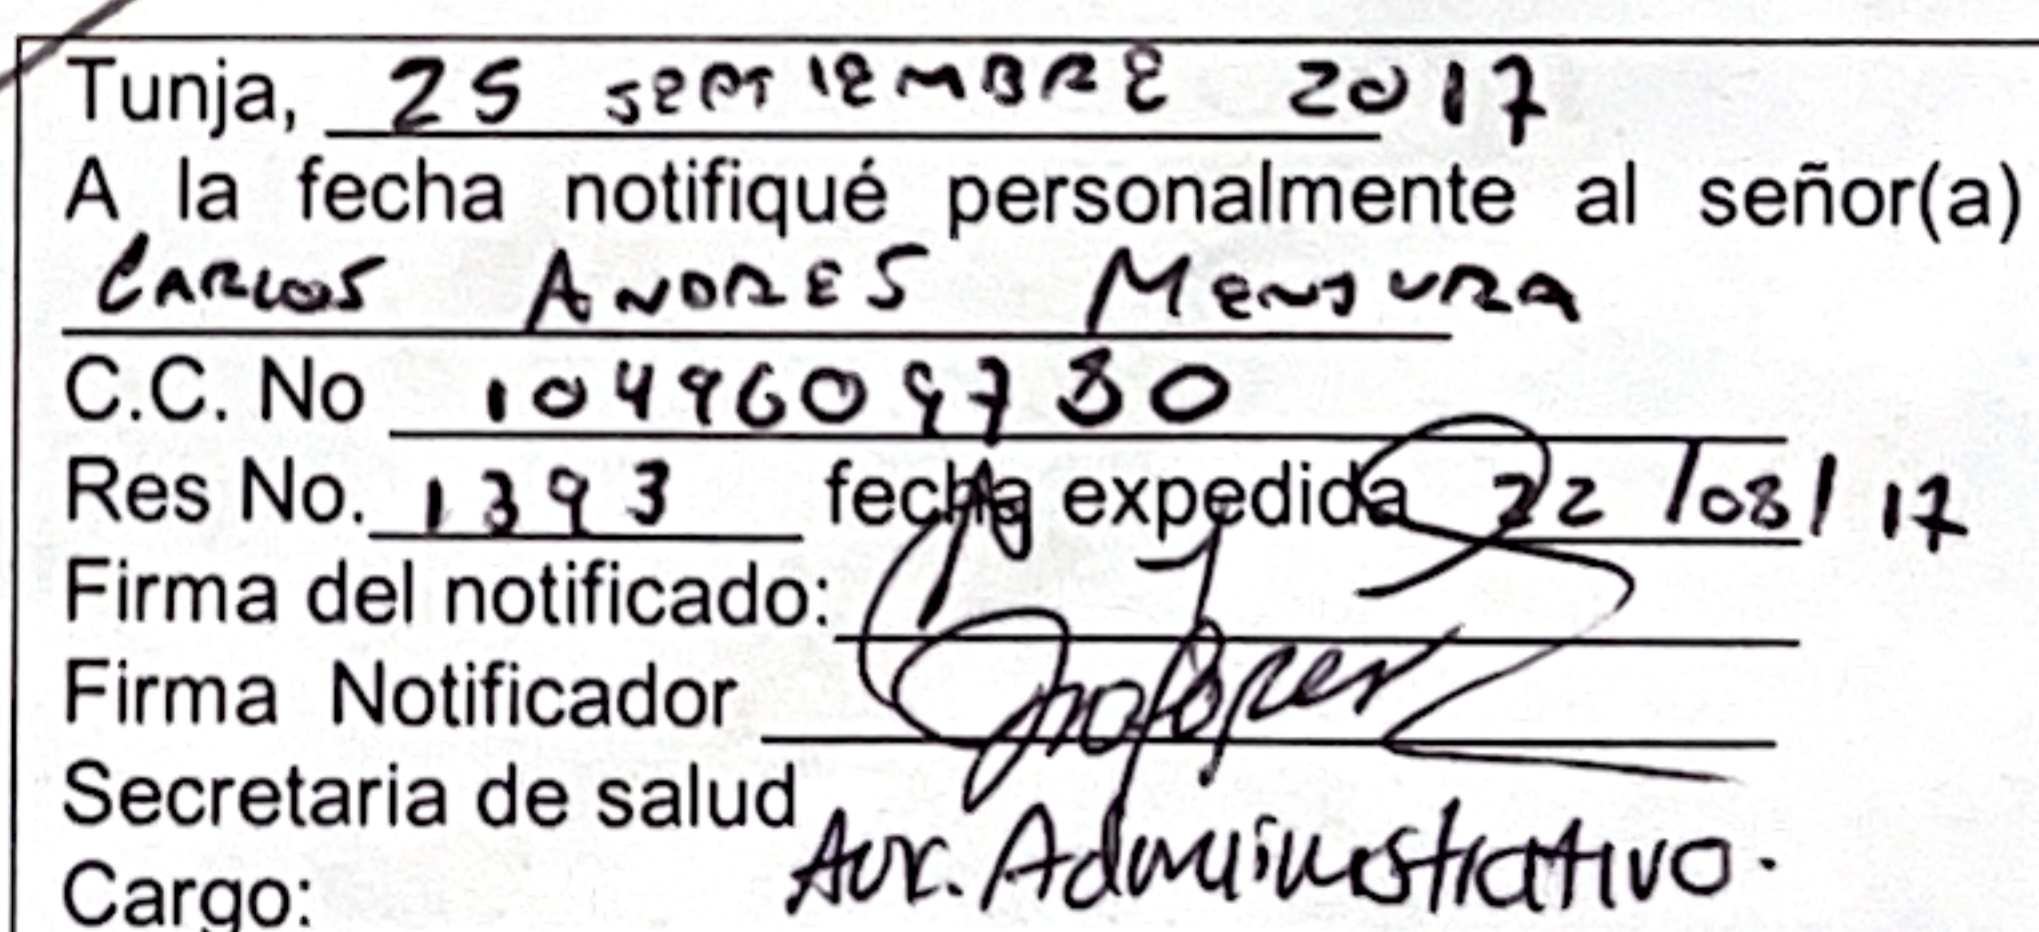 Tunja, 25 SEPTIEMBRE 2017
A la fecha notifiqué personalmente al señor(a)
CARLOS ANDRES MENSURA
C.C. No 1049609780
Res No. 1393 fecha expedida 22/08/17
Firma del notificado:
Firma Notificador
Secretaria de salud
Cargo: Aux. Administrativo.